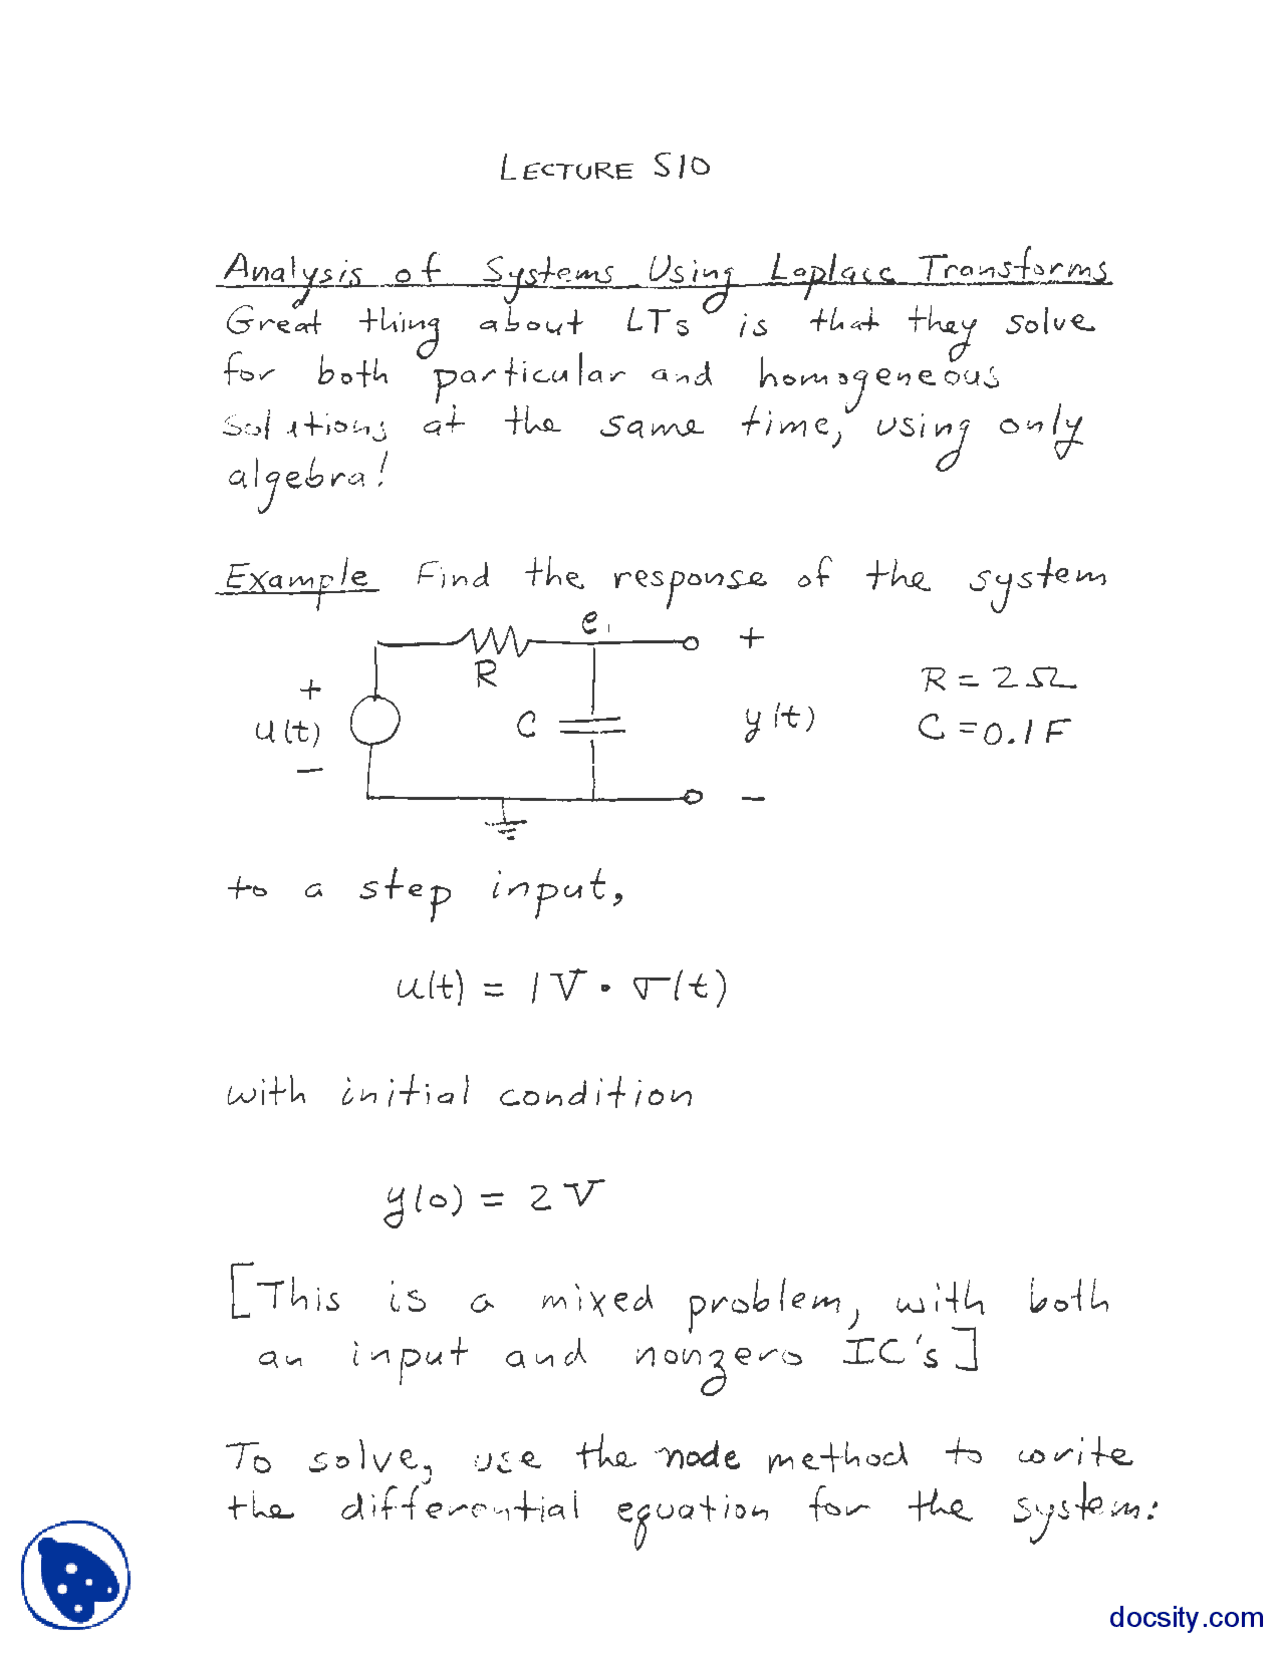 LECTURE S10
Analysis of Systems Using Laplace Transforms
Great thing about LTs is that they solve
for both particular and homogeneous
solutions at the same time, using only
algebra!
Example Find the response of the system
e₁
+
R
+
R = 2 Ω
u(t)
C
y(t)
C = 0.1 F
−
−
to a step input,
u(t) = 1 V • σ(t)
with initial condition
y(0) = 2 V
[This is a mixed problem, with both
an input and nonzero IC's]
To solve, use the node method to write
the differential equation for the system:
docsity.com